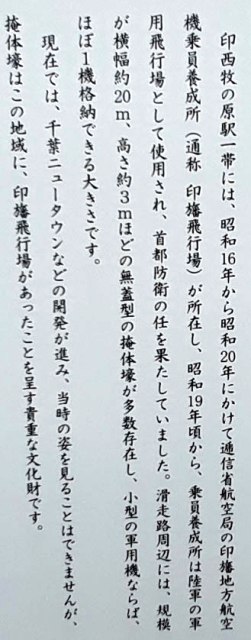 印西牧の原駅一帯には、昭和16年から昭和20年にかけて逓信省航空局の印旛地方航空
機乗員養成所（通称 印旛飛行場）が所在し、昭和19年頃から、乗員養成所は陸軍の軍
用飛行場として使用され、首都防衛の任を果たしていました。滑走路周辺には、規模
が横幅約20m、高さ約3mほどの無蓋型の掩体壕が多数存在し、小型の軍用機ならば、
ほぼ1機格納できる大きさです。
現在では、千葉ニュータウンなどの開発が進み、当時の姿を見ることはできませんが、
掩体壕はこの地域に、印旛飛行場があったことを呈す貴重な文化財です。